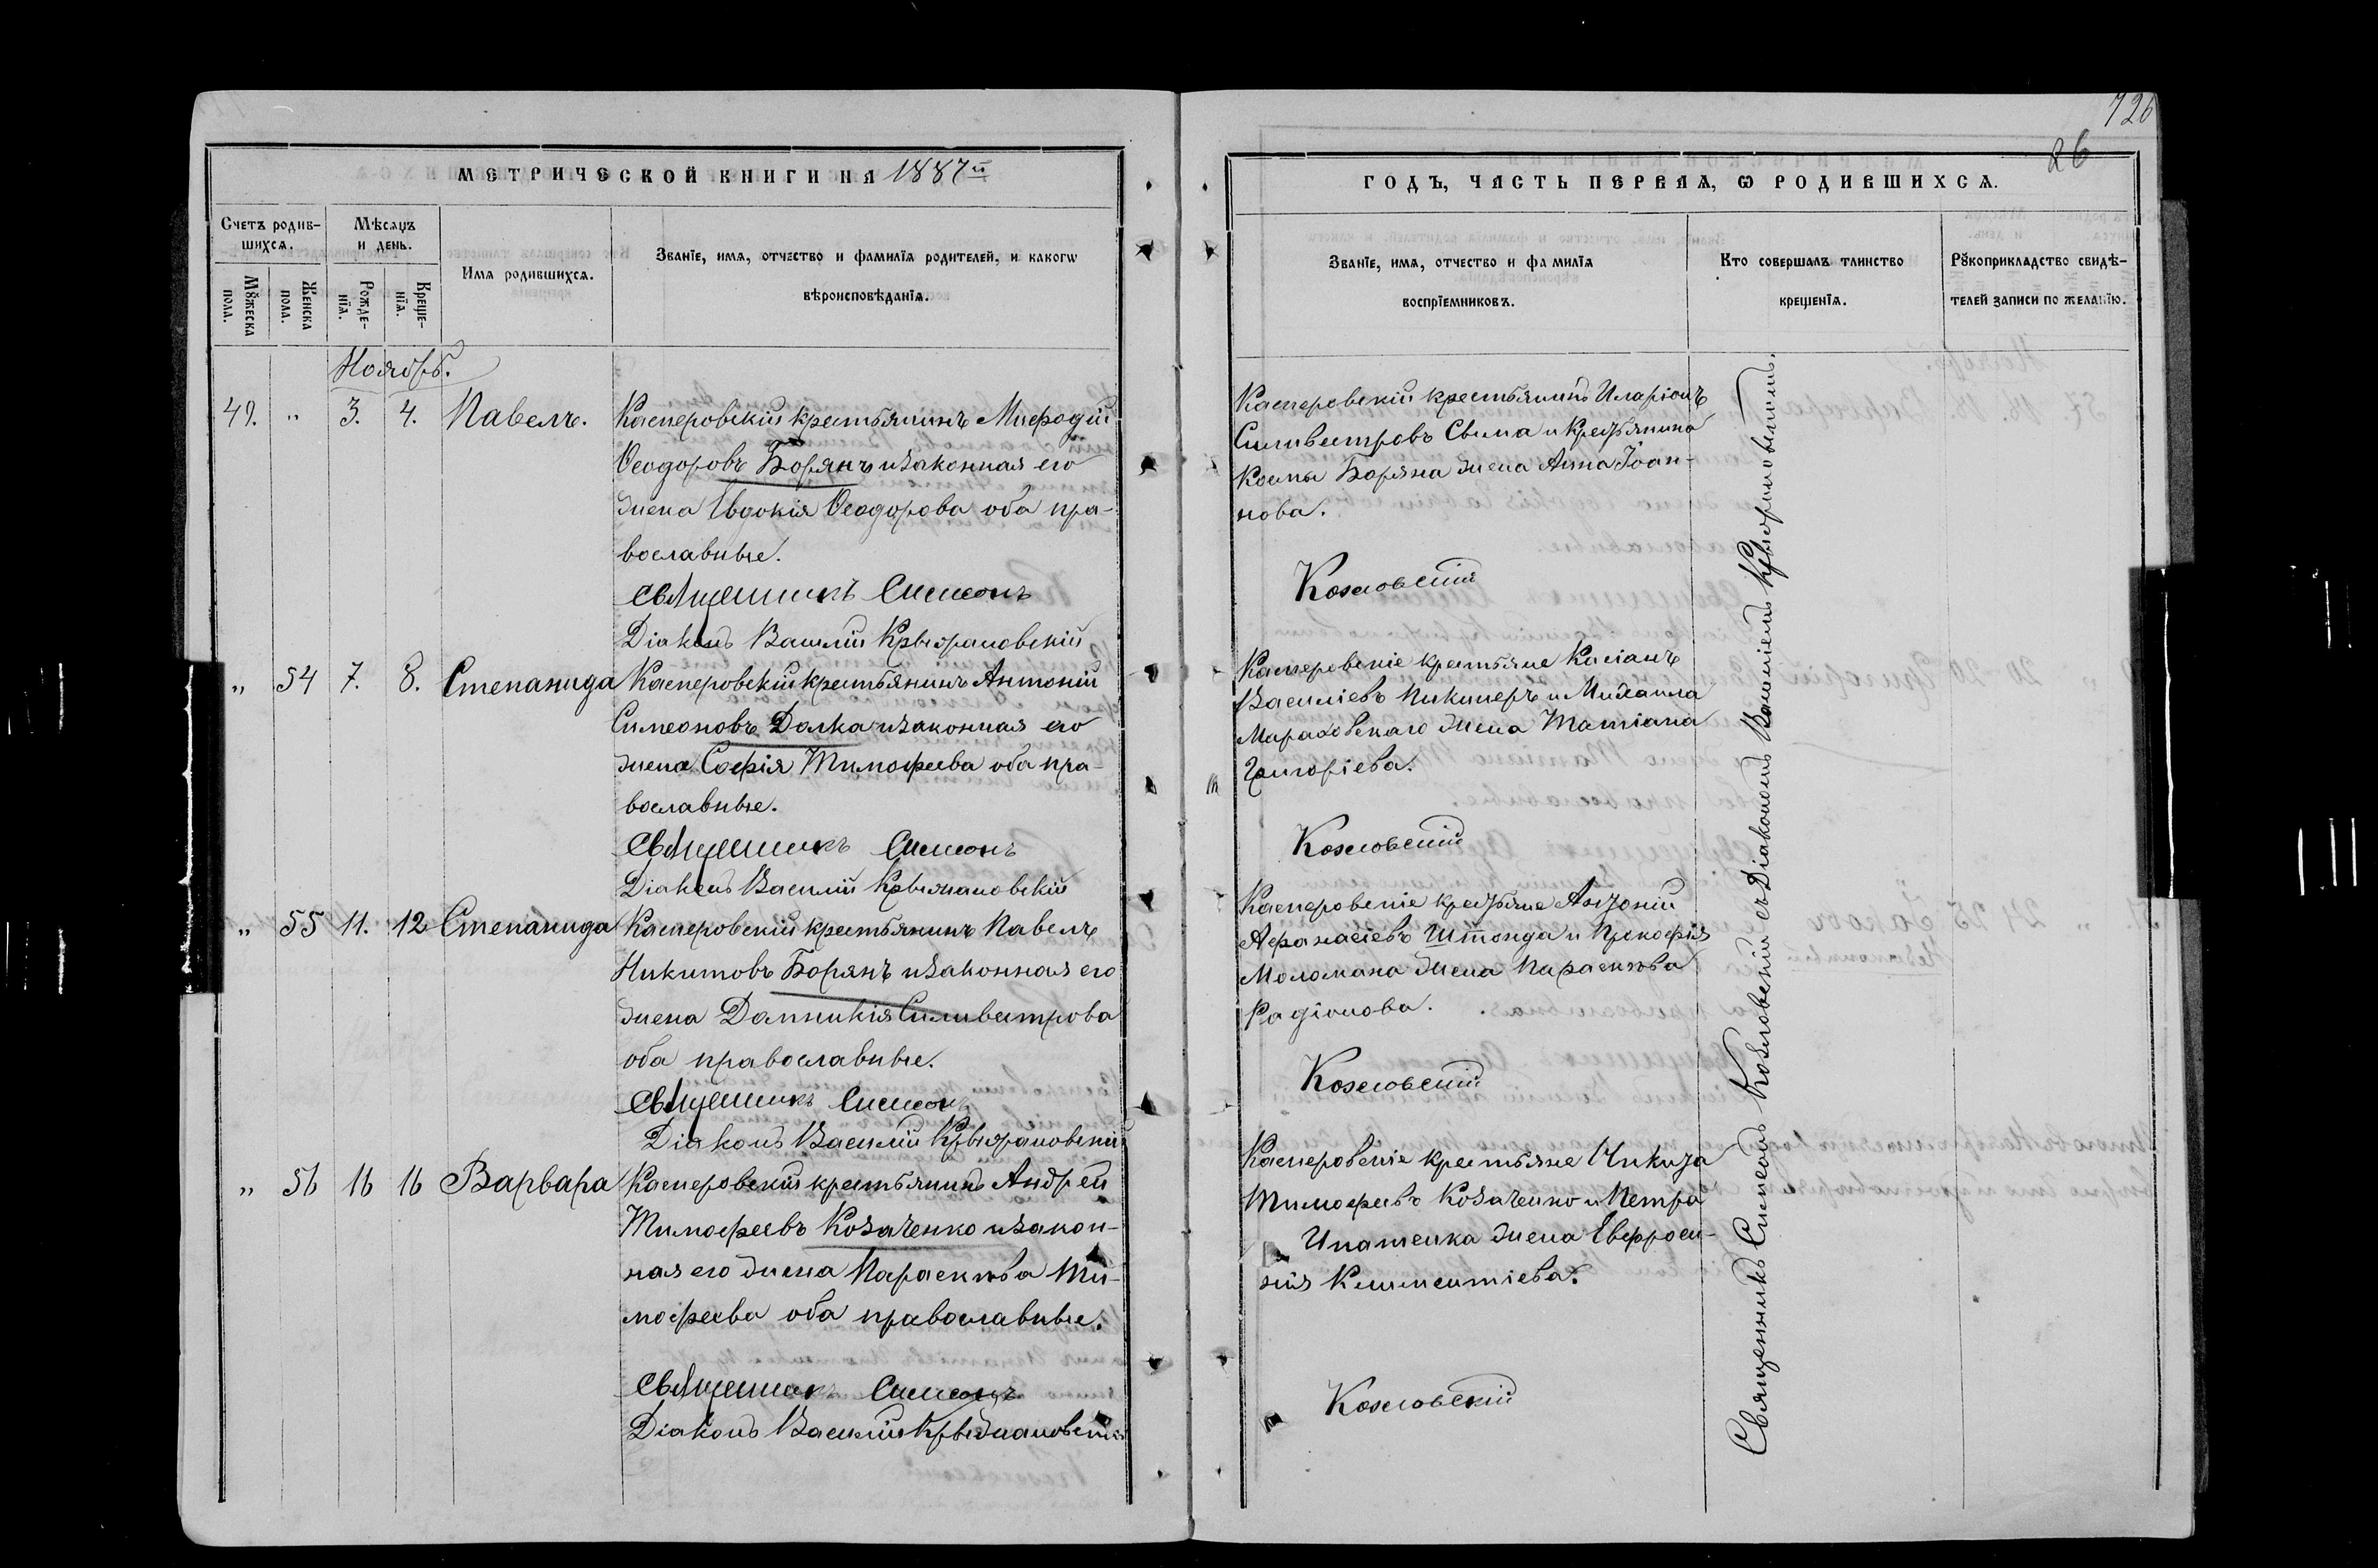 726
26
МЕТРИЧЕСКОЙ КНИГИ НА 1887й
ГОДЪ, ЧАСТЬ ПЕРВАЯ, Ѡ РОДИВШИХСѦ.
Счетъ родив-
шихсѧ.
Мꙋжеска
пола.
Женска
пола.
Мѣсѧцъ
и день.
Рожде-
нїѧ.
Креще-
нїѧ.
Имѧ родившихсѧ.
Званїе, имѧ, отчество и фамилїѧ родителей, и какогѡ
вѣроисповѣданїѧ.
Званїе, имѧ, отчество и фамилїѧ
воспрїемниковъ.
Кто совершалъ таинство
крещенїѧ.
Рꙋкоприкладство свидѣ-
телей записи по желанїю.
Ноябрь.
49. „ 3. 4. Павелъ.
Касперовскій крестьянинъ Мифодій
Ѳеодоровъ Борянъ и законная его
жена Евдокія Ѳеодорова оба пра-
вославные.
Священникъ Симеонъ
Діаконъ Василій Крыжановскій
Касперовскій крестьянинъ Иларіонъ
Силивестровъ Свима и крестьянина
Космы Боряна жена Анна Іоан-
нова.
Козловскій
„ 54 7. 8. Степанида
Касперовскій крестьянинъ Антоній
Симеоновъ Далка и законная его
жена Софія Тимофеева оба пра-
вославные.
Священникъ Симеонъ
Діаконъ Василій Крыжановскій
Касперовскіе крестьяне Касіанъ
Василіевъ Пикинеръ и Михаила
Мараховскаго жена Татіана
Григоріева.
Козловскій
„ 55 11. 12 Степанида
Касперовскій крестьянинъ Павелъ
Никитовъ Борянъ и законная его
жена Домникія Силивестрова
оба православные.
Священникъ Симеонъ
Діаконъ Василій Крыжановскій
Касперовскіе крестьяне Антоній
Афанасіевъ Штонда и Прокофія
Моломана жена Параскева
Радіонова.
Козловскій
„ 56 16 16 Варвара
Касперовскій крестьянинъ Андрей
Тимофеевъ Козаченко и закон-
ная его жена Параскева Ти-
мофеева оба православные.
Священникъ Симеонъ
Діаконъ Василій Крыжановскій
Касперовскіе крестьяне Никита
Тимофеевъ Козаченко и Петра
Ипатенка жена Евфроси-
нія Климентіева.
Козловскій
Священникъ Симеонъ Козловскій съ Діакономъ Василіемъ Крыжановскимъ.